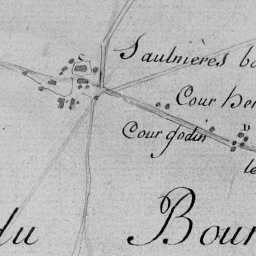 C
Saulnières
Cour
D
Cour godin
le
du Bour